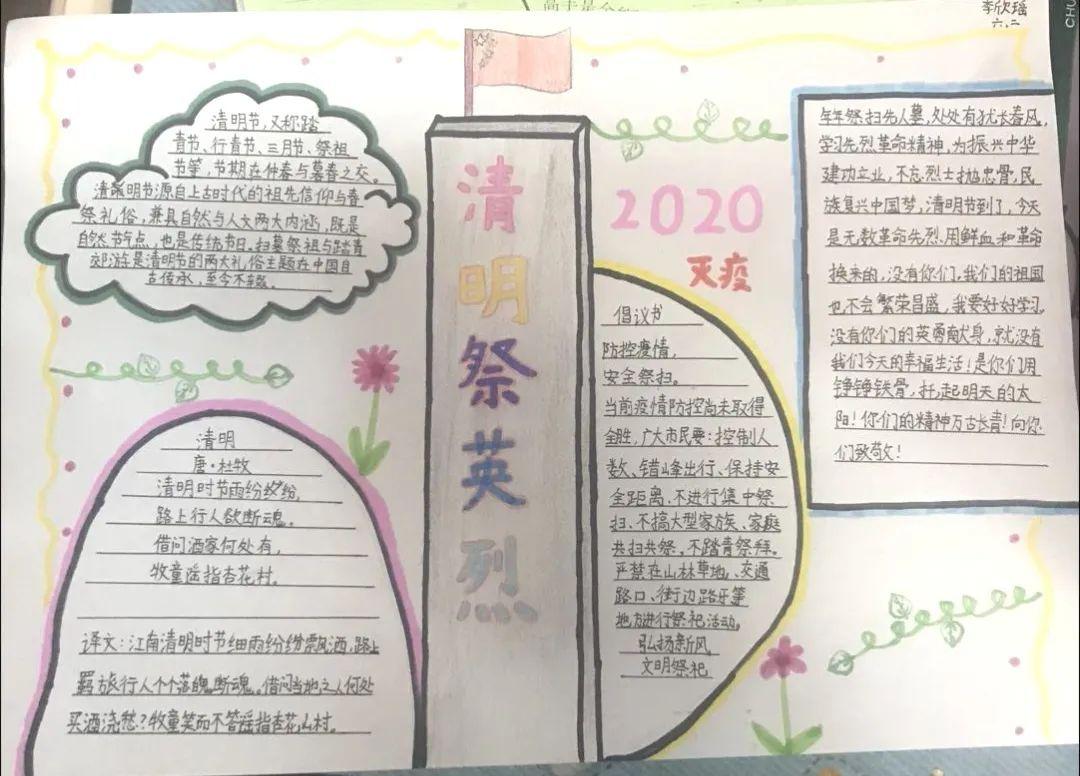 李欣瑶
六.二
清明祭英烈
2020
灭疫
清明节,又称踏
青节、行青节、三月节、祭祖
节等,节期在仲春与暮春之交。
清明节源自上古时代的祖先信仰与春
祭礼俗,兼具自然与人文两大内涵,既是
自然节气点,也是传统节日,扫墓祭祖与踏青
郊游是清明节的两大礼俗主题在中国自
古传承,至今不辍。
清明
唐·杜牧
清明时节雨纷纷,
路上行人欲断魂。
借问酒家何处有,
牧童遥指杏花村。
译文:江南清明时节细雨纷纷飘洒,路上
羁旅行人个个落魄断魂。借问当地之人何处
买酒浇愁?牧童笑而不答遥指杏花山村。
倡议书
防控疫情,
安全祭扫。
当前疫情防控尚未取得
全胜,广大市民要:控制人
数、错峰出行、保持安
全距离,不进行集中祭
扫、不搞大型家族、家庭
共扫共祭,不踏青祭拜。
严禁在山林草地、交通
路口、街边路牙等
地方进行祭祀活动。
弘扬新风
文明祭祀
年年祭扫先人墓,处处有犹长春风,
学习先烈革命精神,为振兴中华
建功立业,不忘烈士抛忠骨,民
族复兴中国梦,清明节到了,今天
是无数革命先烈,用鲜血和革命
换来的,没有你们,我们的祖国
也不会繁荣昌盛,我要好好学习,
没有你们的英勇献身,就没有
我们今天的幸福生活!是你们用
铮铮铁骨,托起明天的太
阳!你们的精神万古长青!向你
们致敬!